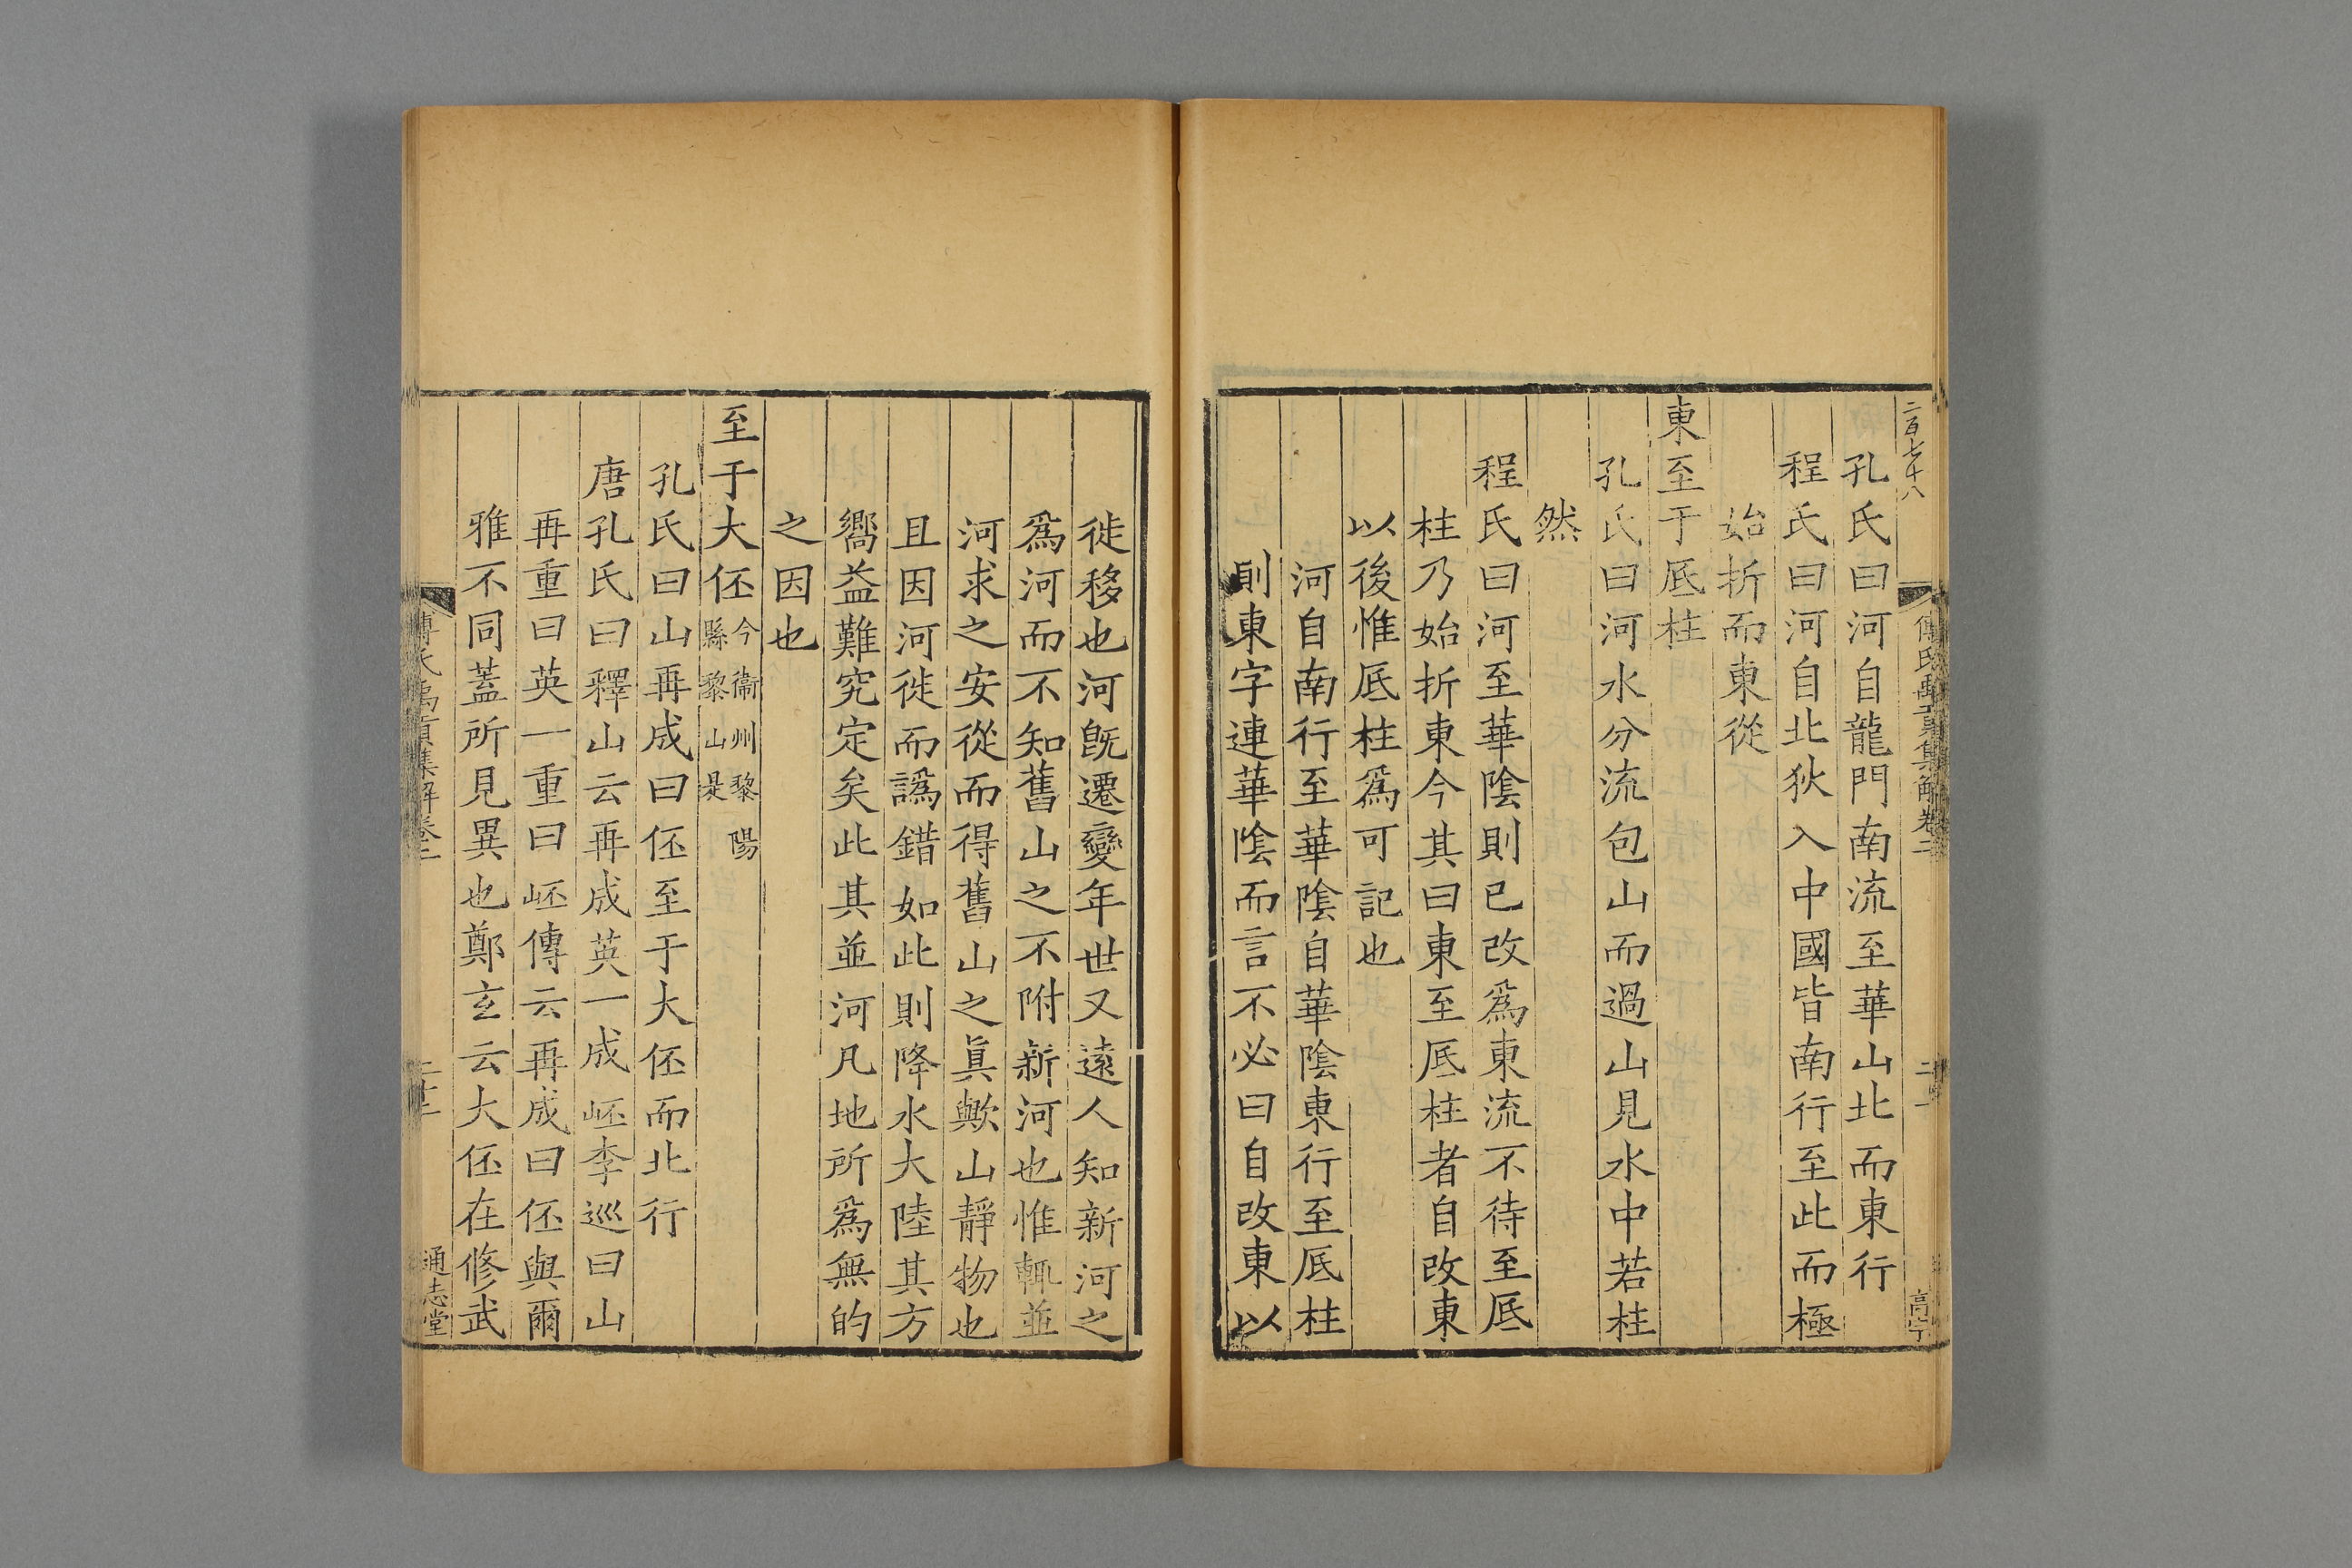 二百七十八
傅氏禹貢集解卷二
二十一
高宁
孔氏曰河自龍門南流至華山北而東行
程氏曰河自北狄入中國皆南行至此而極
始折而東從
東至于厎柱
孔氏曰河水分流包山而過山見水中若柱
然
程氏曰河至華陰則已改爲東流不待至厎
柱乃始折東今其曰東至厎柱者自改東
以後惟厎柱爲可記也
河自南行至華陰自華陰東行至厎柱
則東字連華陰而言不必曰自改東以
徙移也河旣遷變年世又遠人知新河之
爲河而不知舊山之不附新河也惟輒並
河求之安從而得舊山之眞歟山靜物也
且因河徙而譌錯如此則降水大陸其方
嚮益難究定矣此其並河凡地所爲無的
之因也
至于大伾今衞州黎陽縣黎山是
孔氏曰山再成曰伾至于大伾而北行
唐孔氏曰釋山云再成英一成岯李巡曰山
再重曰英一重曰岯傳云再成曰伾與爾
雅不同蓋所見異也鄭玄云大伾在修武
傅氏禹貢集解卷二
二十二
通志堂